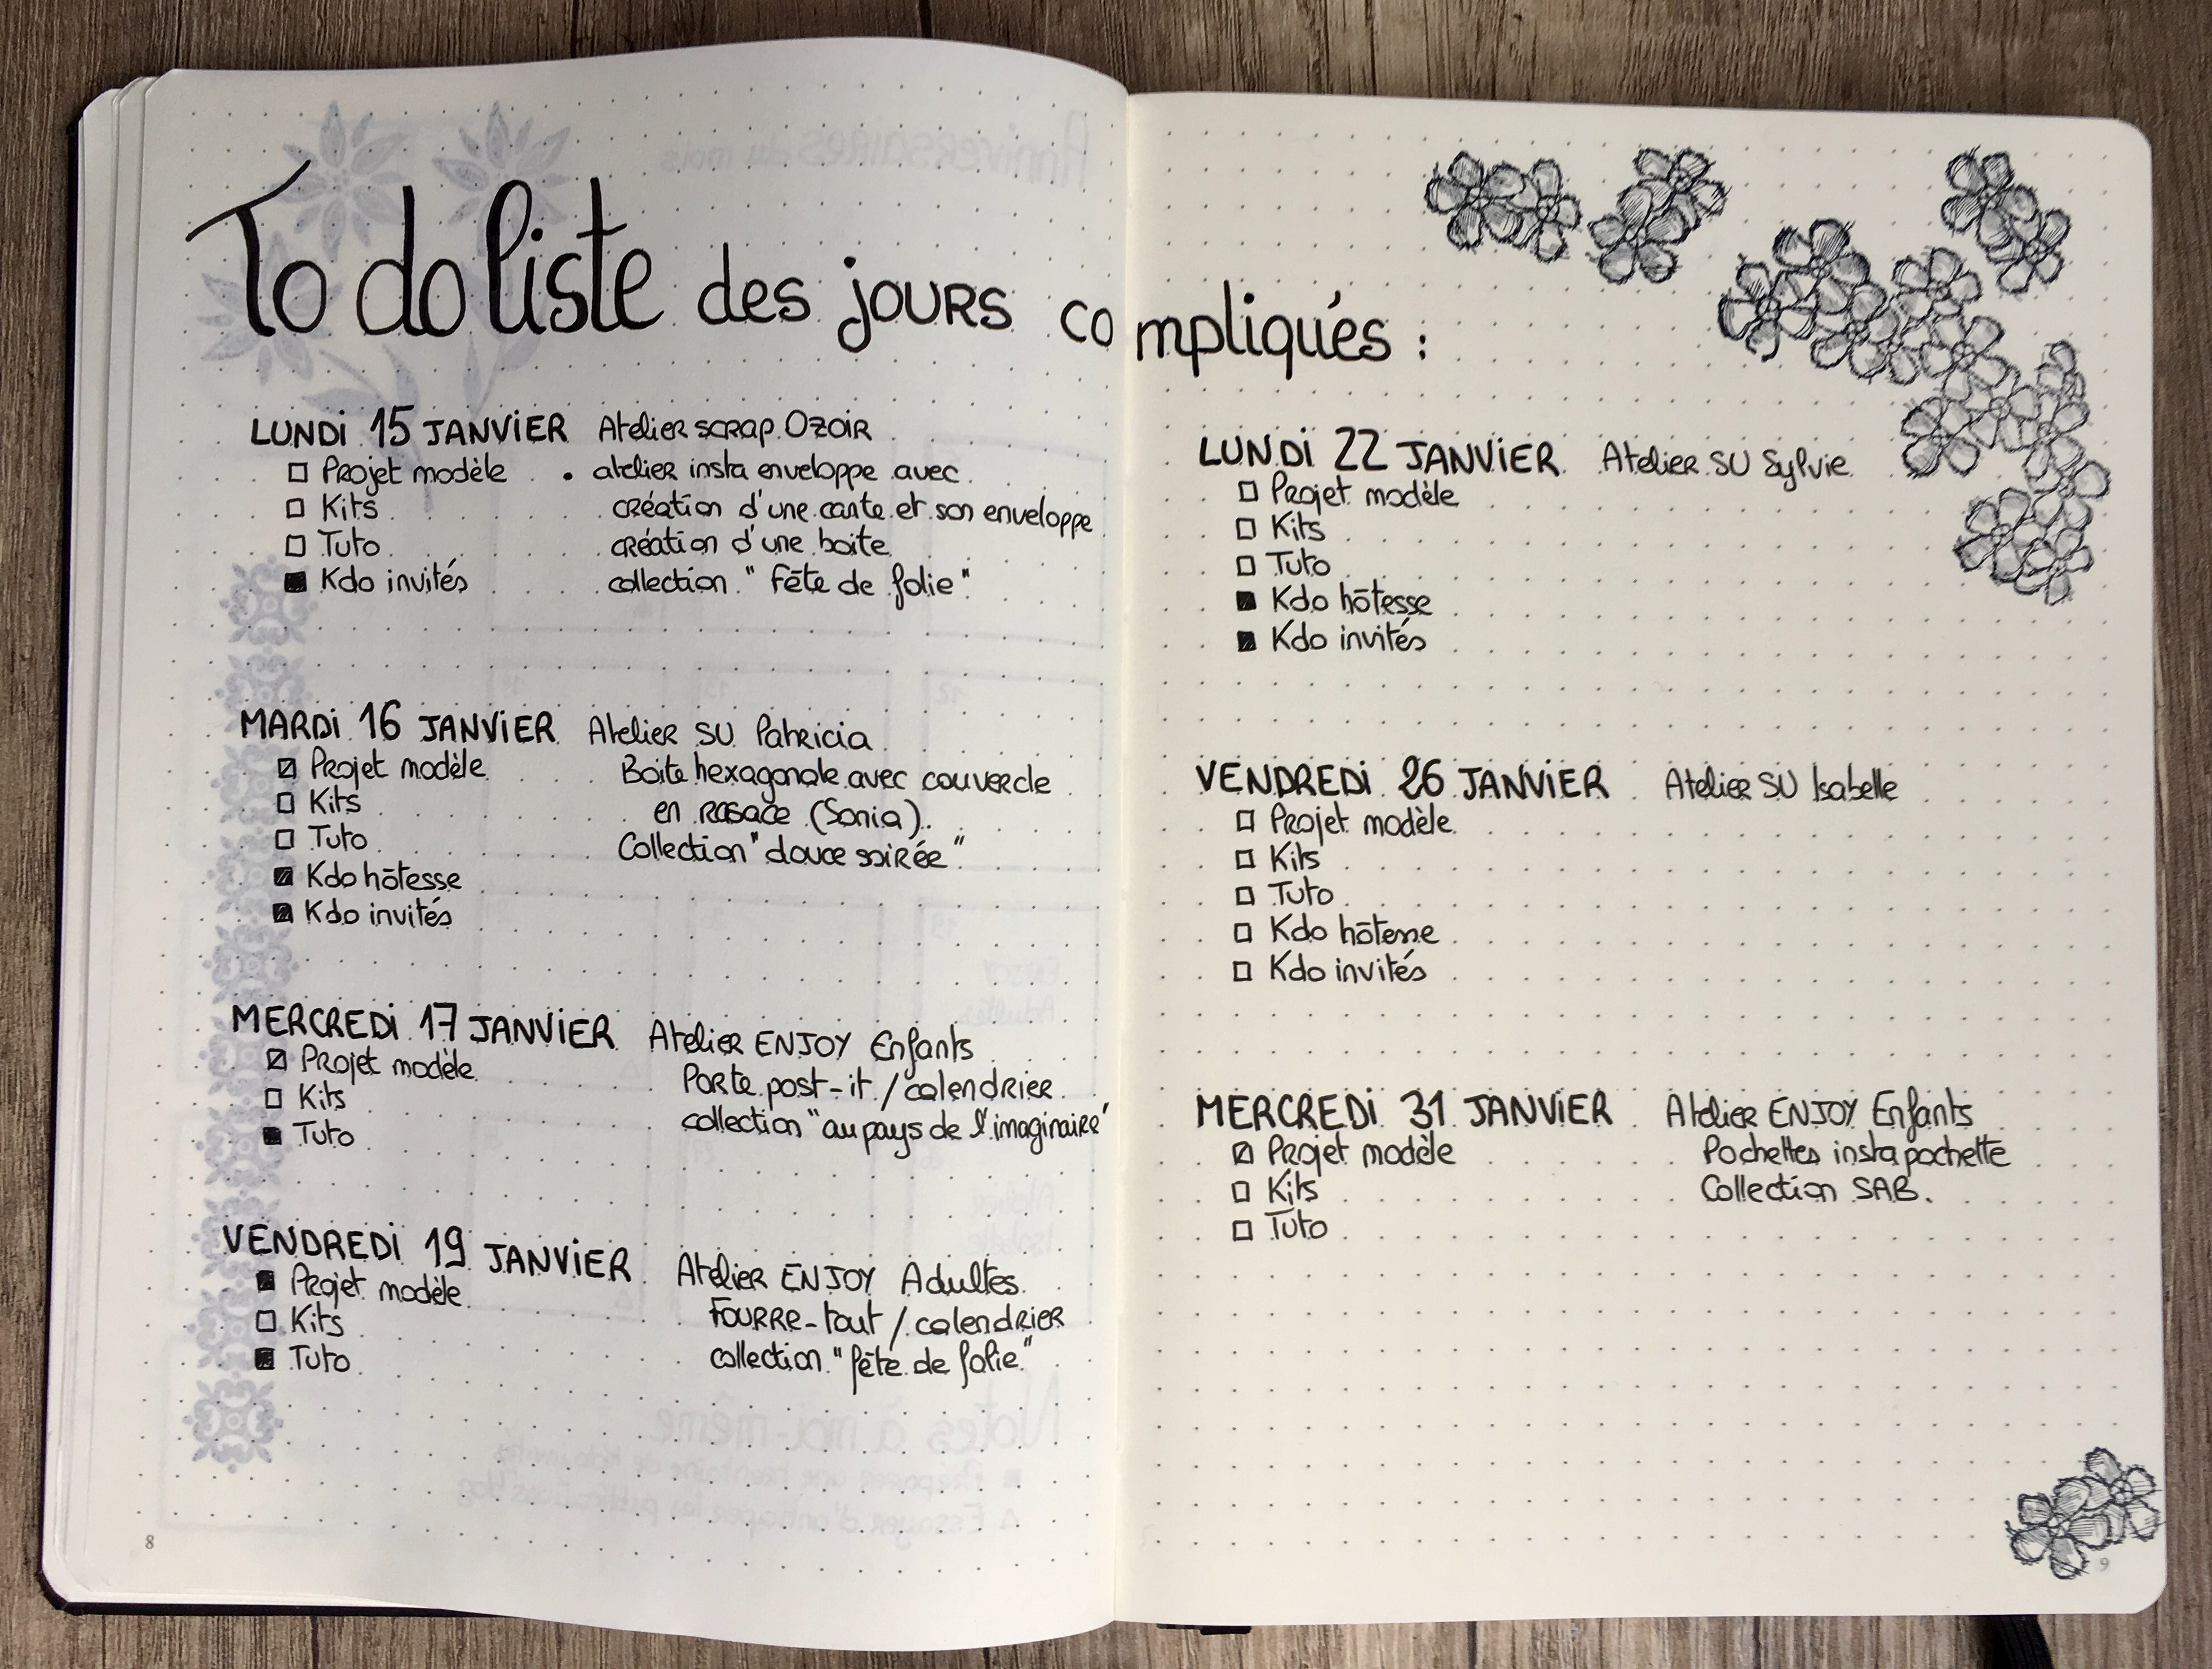 To do liste des jours compliqués :
LUNDI 15 JANVIER Atelier scrap Ozoir
☐ Projet modèle • atelier insta enveloppe avec
☐ Kits création d'une carte et son enveloppe
☐ Tuto création d'une boite
■ Kdo invités collection "Fête de folie"
MARDI 16 JANVIER Atelier SU Patricia
☑ Projet modèle Boite hexagonale avec couvercle
☐ Kits en rosace (Sonia).
☐ Tuto Collection "douce soirée"
■ Kdo hôtesse
■ Kdo invités
MERCREDI 17 JANVIER Atelier ENJOY Enfants
☑ Projet modèle Porte post-it / calendrier
☐ Kits collection "au pays de l'imaginaire"
■ Tuto
VENDREDI 19 JANVIER Atelier ENJOY Adultes
■ Projet modèle Fourre-tout / calendrier
☐ Kits collection "fête de folie"
■ Tuto
8
LUNDI 22 JANVIER Atelier SU Sylvie
☐ Projet modèle
☐ Kits
☐ Tuto
■ Kdo hôtesse
■ Kdo invités
VENDREDI 26 JANVIER Atelier SU Isabelle
☐ Projet modèle
☐ Kits
☐ Tuto
☐ Kdo hôtesse
☐ Kdo invités
MERCREDI 31 JANVIER Atelier ENJOY Enfants
☑ Projet modèle Pochettes insta pochette
☐ Kits Collection SAB.
☐ Tuto
9